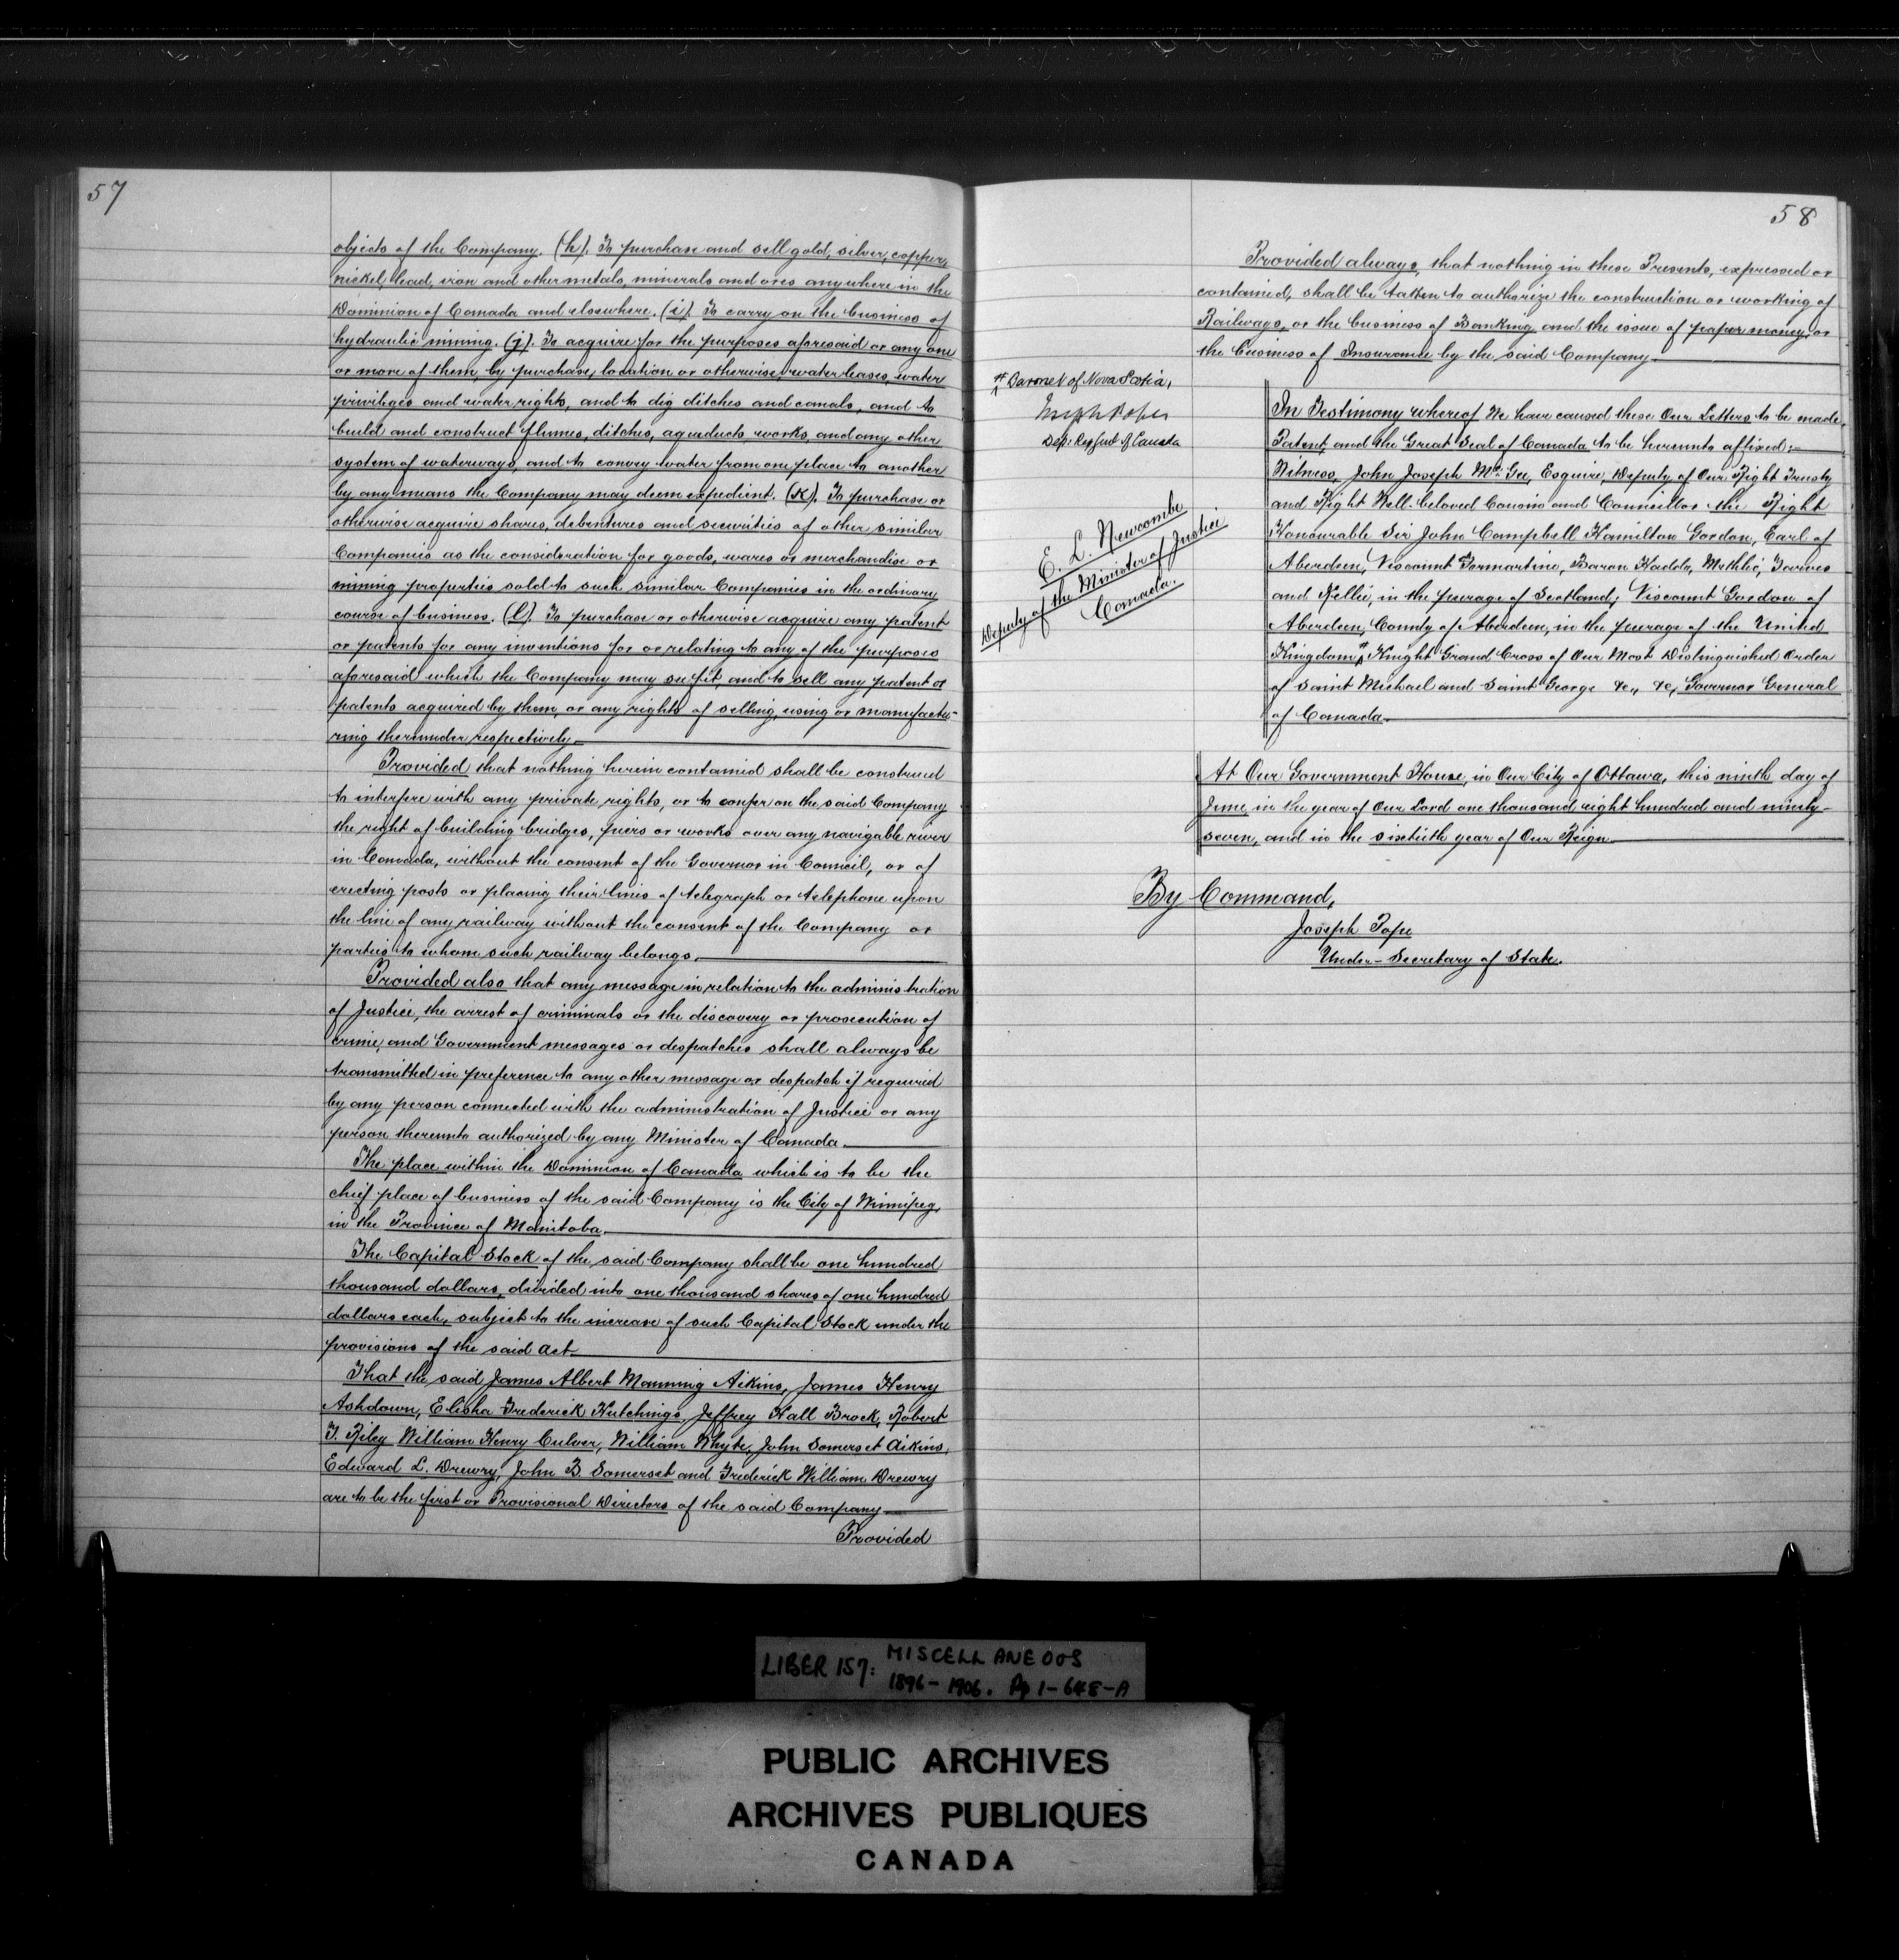 57
objects of the Company. (h). To purchase and sell gold, silver, copper,
nickel, lead, iron and other metals, minerals and ores anywhere in the
Dominion of Canada and elsewhere. (i). To carry on the business of
hydraulic mining. (j). To acquire for the purposes aforesaid or any one
or more of them, by purchase, location or otherwise, water leases, water
privileges and water rights, and to dig ditches and canals, and to
build and construct flumes, ditches, aqueducts works, and any other
system of waterways, and to convey water from one place to another
by any means the Company may deem expedient. (K). To purchase or
otherwise acquire shares, debentures and securities of other similar
Companies as the consideration for goods, wares or merchandise or
mining properties sold to such similar Companies in the ordinary
course of business. (l). To purchase or otherwise acquire any patent
or patents for any inventions for or relating to any of the purposes
aforesaid which the Company may see fit, and to sell any patent or
patents acquired by them, or any rights of selling, using or manufactu-
ring thereunder respectively.
Provided that nothing herein contained shall be construed
to interfere with any private rights, or to confer on the said Company
the right of building bridges, piers or works over any navigable river
in Canada, without the consent of the Governor in Council, or of
erecting posts or placing their lines of telegraph or telephone upon
the line of any railway without the consent of the Company or
parties to whom such railway belongs.
Provided also that any message in relation to the administration
of Justice, the arrest of criminals or the discovery or prosecution of
crime, and Government messages or despatches shall always be
transmitted in preference to any other message or despatch if required
by any person connected with the administration of Justice or any
person thereunto authorized by any Minister of Canada.
The place within the Dominion of Canada which is to be the
chief place of business of the said Company is the City of Winnipeg,
in the Province of Manitoba.
The Capital Stock of the said Company shall be one hundred
thousand dollars, divided into one thousand shares of one hundred
dollars each, subject to the increase of such Capital Stock under the
provisions of the said Act.
That the said James Albert Manning Aikins, James Henry
Ashdown, Elisha Frederick Hutchings, Jeffrey Hall Brock, Robert
T. Riley William Henry Culver, William Whyte, John Somerset Aikins,
Edward L. Drewry, John B. Somerset and Frederick William Drewry
are to be the first or Provisional Directors of the said Company
Provided
58
Provided always, that nothing in these Presents, expressed or
contained, shall be taken to authorize the construction or working of
Railways, or the business of Banking and the issue of paper money, or
the business of Insurance by the said Company.
# Baronet of Nova Scotia,
Joseph Pope
Dep: Regist of Canada
E. L. Newcombe
Deputy of the Minister of Justice
Canada.
In Testimony whereof We have caused these Our Letters to be made
Patent, and the Great Seal of Canada to be hereunto affixed:
Witness, John Joseph McGee, Esquire, Deputy of Our Right Trusty
and Right Well-beloved Cousin and Councillor the Right
Honourable Sir John Campbell Hamilton Gordon, Earl of
Aberdeen, Viscount Formartine, Baron Haddo, Methlic, Tarves
and Kellie, in the peerage of Scotland; Viscount Gordon of
Aberdeen, County of Aberdeen, in the peerage of the United
Kingdom, # Knight Grand Cross of Our Most Distinguished Order
of Saint Michael and Saint George &c., &c, Governor General
of Canada.
At Our Government House, in Our City of Ottawa, this ninth day of
June, in the year of Our Lord one thousand eight hundred and ninety-
seven, and in the sixtieth year of Our Reign
By Command,
Joseph Pope
Under-Secretary of State.
LIBER 157: MISCELLANEOUS
1896-1906. Pp 1-648-A
PUBLIC ARCHIVES
ARCHIVES PUBLIQUES
CANADA